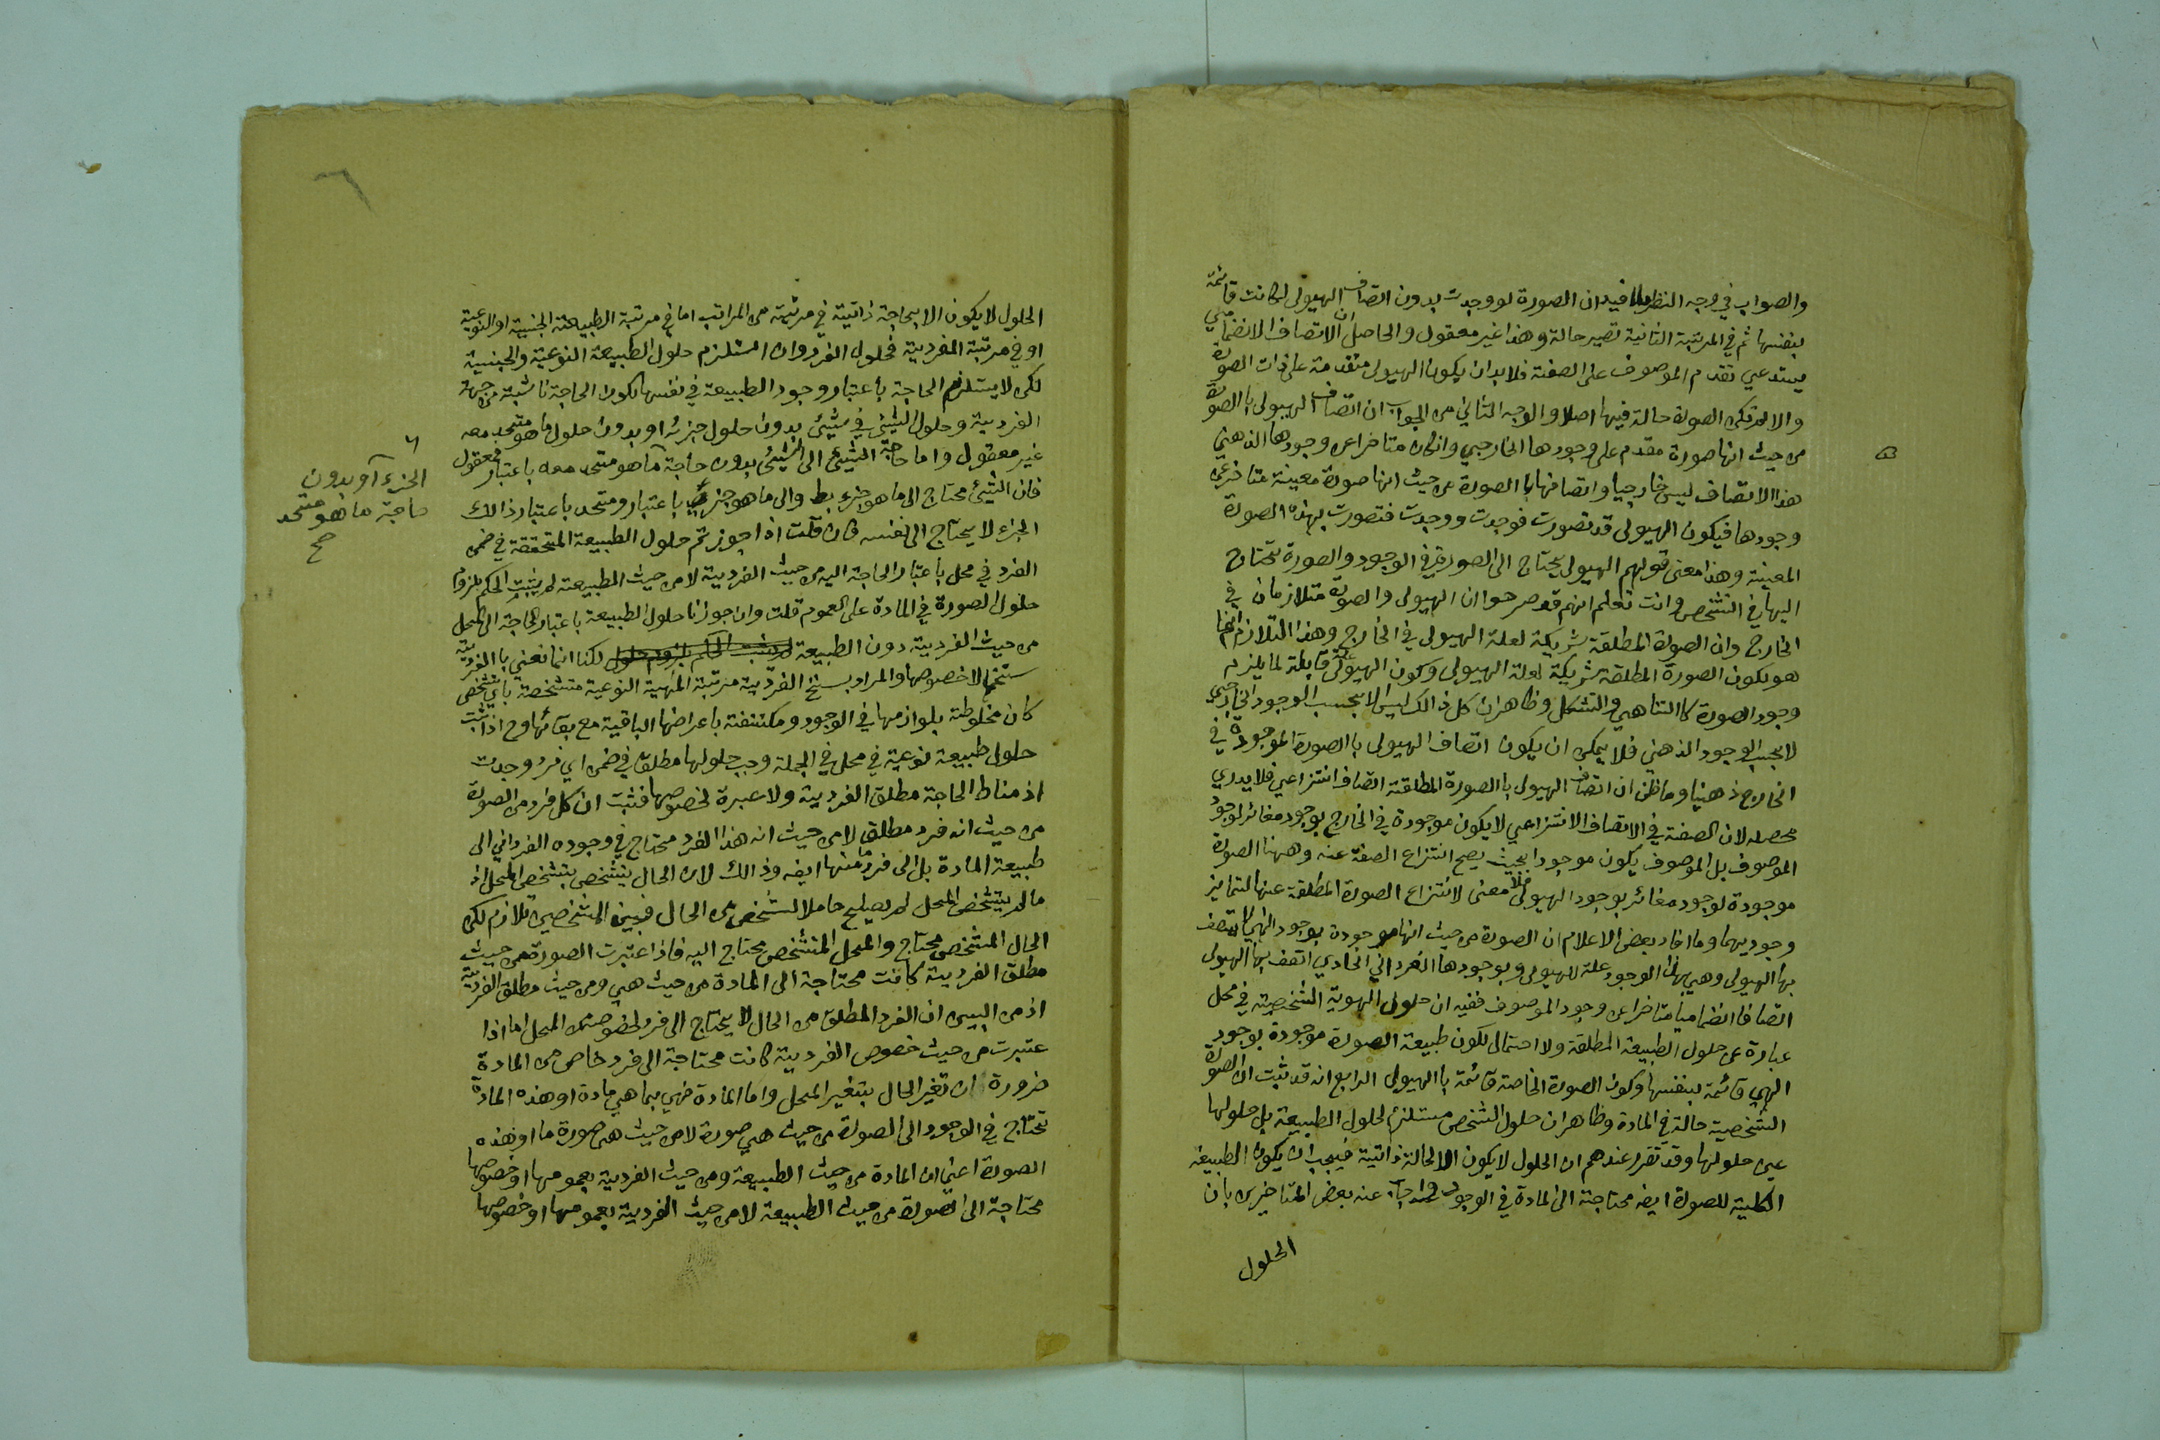 والصواب في وجه النظر ان الصورة لو وجدت بدون اتصاف الهيولى لكانت قائمة
بنفسها ثم في المرتبة الثانية تصير حالة وهذا غير معقول والحاصل ان الاتصاف الانضمامي
يستدعي تقدم الموصوف على الصفة فلا بد ان يكون الهيولى متقدمة على ذات الصورة
والا لم تكن الصورة حالة فيها اصلا والوجه الثاني من الجواب ان اتصاف الهيولى با الصورة
من حيث انها صورة مقدم على وجودها الخارجي وانكان متاخرا عن وجودها الذهني
هذا الاتصاف ليس خارجيا واتصافها با الصورة من حيث انها صورة معينة متاخر عن
وجودها فيكون الهيولى قد تصورت فوجدت ووجدت فتصورت بهذه الصورة
المعينة وهذا معنى قولهم الهيولى يحتاج الى الصورة في الوجود والصورة تحتاج
اليها في التشخص وانت تعلم انهم قد صرحوا ان الهيولى والصورة متلازمان في
الخارج وان الصورة المطلقة شريكة لعلة الهيولى في الخارج وهذا التلازم انما
هو بكون الصورة المطلقة شريكة لعلة الهيولى وكون الهيولى علة قابلة لما يلزم
وجود الصورة كالتناهي والتشكل وظاهر ان كل ذالك ليس الا بحسب الوجود الخارجي
لا بحسب الوجود الذهني فلا يمكن ان يكون اتصاف الهيولى با الصورة الموجودة في
الخارج ذهنيا وما ظن ان اتصاف الهيولى با الصورة المطلقة اتصاف انتزاعي فلا يدرى
محصله لان الصفة في الاتصاف الانتزاعي لا يكون موجودة في الخارج بوجود مغائر لوجود
الموصوف بل الموصوف يكون موجودا بحيث يصح انتزاع الصفة عنه وههنا الصورة
موجودة لوجود مغائر بوجود الهيولى فلا معنى لانتزاع الصورة المطلقة عنها لتمايز
وجوديهما وما افاد بعض الاعلام ان الصورة من حيث انها موجودة بوجود الهي لا تتصف
بها الهيولى وهي بهذا الوجود علة للهيولى وبوجودها الفرداني المادي اتصف بها الهيولى
اتصافا انضماميا متاخرا عن وجود الموصوف ففيه ان حلول الهوية الشخصية في محل
عبارة عن حلول الطبيعة المطلقة ولا احتمال لكون طبيعة الصورة موجودة بوجود
الهي قائمة بنفسها وكون الصورة الخاصة قائمة با الهيولى الرابع انه قد ثبت ان الصورة
الشخصية حالة في المادة وظاهر ان حلول الشخص مستلزم لحلول الطبيعة بل حلولها
عين حلولها وقد تقرر عندهم ان الحلول لا يكون الا لحاجة ذاتية فيجب ان يكون الطبيعة
الكلية للصورة ايضه محتاجة الى المادة في الوجود واجاب عنه بعض المتاخرين بان
الحلول
٦
الحلول لا يكون الا بحاجة ذاتية في مرتبة من المراتب اما في مرتبة الطبيعة الجنسية او النوعية
او في مرتبة الفردية فحلول الفرد وان استلزم حلول الطبيعة النوعية والجنسية
لكن لا يستلزم الحاجة باعتبار وجود الطبيعة في نفسها لكون الحاجة ناشئة من جهة
الفردية وحلول الشيئ في شيئ بدون حلول جزئه او بدون حلول ما هو متحد معه
غير معقول واما حاجة الشيئ الى الشيئ بدون حاجة ما هو متحد معه باعتبار فمعقول
فان الشيئ محتاج الى ما هو جزء بط والى ما هو جزء باعتبار ومتحد باعتبار ذالك
الجزء لا يحتاج الى نفسه فان قلت اذا جوزتم حلول الطبيعة المتحققة في ضمن
الفرد في محل باعتبار الحاجة اليه من حيث الفردية لا من حيث الطبيعة لم يثبت الحكم بلزوم
حلول الصورة في المادة على العموم قلت وان جوزنا حلول الطبيعة باعتبار الحاجة الى المحل
من حيث الفردية دون الطبيعة لم يثبت الحكم بلزوم حلول لكنا انما نعني با الفردية
سنخها لا خصوصها والمراد بسنخ الفردية مرتبة المهية النوعية متشخصة باي تشخص
كان مخلوطة بلوازمها في الوجود ومكتنفة باعراضها الباقية مع بقائها وح اذا ثبت
حلول طبيعة نوعية في محل في الجملة وجب حلولها مطلقا في ضمن اي فرد وجدت
اذ مناط الحاجة مطلق الفردية ولا عبرة لخصوصها فثبت ان كل فرد من الصورة
من حيث انه فرد مطلق لا من حيث انه هذا الفرد محتاج في وجوده الفرداني الى
طبيعة المادة بل الى فرد ما منها ايضه وذالك لان الحال يتشخص بتشخص المحل اذ
ما لم يتشخص المحل لم يصلح حاملا لتشخص من الحال فبين المتشخصين تلازم لكن
الحال المتشخص محتاج والمحل المتشخص محتاج اليه فاذا اعتبرت الصورة من حيث
مطلق الفردية كانت محتاجة الى المادة من حيث هي ومن حيث مطلق الفردية
اذ من البين ان الفرد المطلق من الحال لا يحتاج الى فرد لخصوصه من المحل اما اذا
عتبرت من حيث خصوص الفردية كانت محتاجة الى فرد خاص من المادة
ضرورة ان تغير الحال بتغير المحل واما المادة فهي بما هي مادة او هذه المادة
تحتاج في الوجود الى الصورة من حيث هي صورة لا من حيث هي صورة ما او هذه
الصورة اعني ان المادة من حيث الطبيعة ومن حيث الفردية بعمومها او خصوصها
محتاجة الى الصورة من حيث الطبيعة لا من حيث الفردية بعمومها او خصوصها
الجزء او بدون
حاجة ما هو متحد
صح